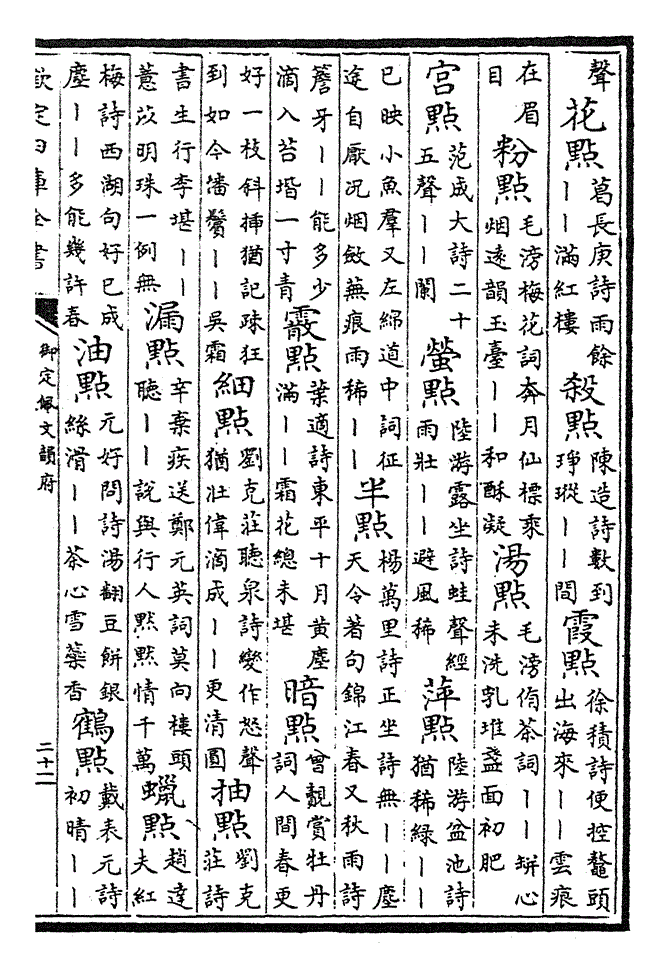 聲花點葛長庚詩雨餘丨丨滿紅樓殺點陳造詩數到琤瑽丨丨間霞點徐積詩便控鼇頭出海來丨丨雲痕
在眉目粉點毛滂梅花詞奔月仙標乘烟遠韻玉臺丨丨和酥凝湯點毛滂侑茶詞丨丨缾心未洗乳堆盞面初肥
宫點范成大詩二十五聲丨丨闌螢點陸游露坐詩蛙聲經雨壯丨丨避風稀萍點陸游盆池詩猶稀綠丨丨
已映小魚羣又左綿道中詞征途自厭況烟斂蕪痕雨稀丨丨半點楊萬里詩正坐詩無丨丨塵天令著句錦江春又秋雨詩
簷牙丨丨能多少滴入苔堦一寸青霰點葉適詩東平十月黄塵滿丨丨霜花總未堪暗點曾覿賞牡丹詞人間春更
好一枝斜插猶記疎狂到如今潘鬢丨丨吳霜細點劉克莊聽泉詩變作怒聲猶壯偉滴成丨丨更清圓抽點劉克莊詩
書生行李堪丨丨薏苡明珠一例無漏點辛棄疾送鄭元英詞莫向樓頭聽丨丨說與行人點點情千萬蠟點趙達夫紅
梅詩西湖句好已成塵丨丨多能幾許春油點元好問詩湯翻豆餅銀絲滑丨丨茶心雪蘂香鶴點戴表元詩初晴丨丨
欽定四庫全書
御定佩文韻府
二十二